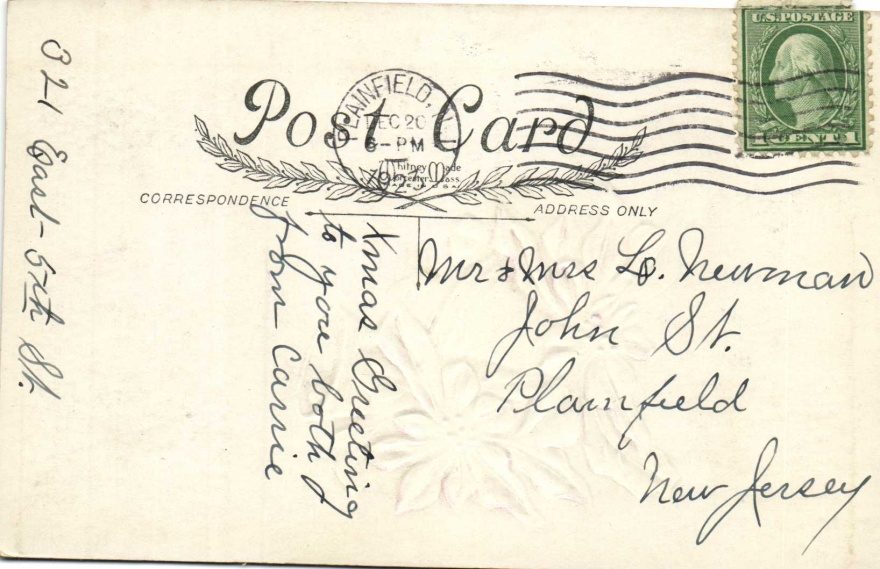 U.S. POSTAGE
1 CENT 1
PLAINFIELD,
DEC 20
6-PM
Post Card
Whitney Made
Worcester, Mass.
CORRESPONDENCE
ADDRESS ONLY
321 East-5th St.
Xmas Greeting
to you both
from Carrie
Mr & Mrs L. Newman
John St.
Plainfield
New Jersey